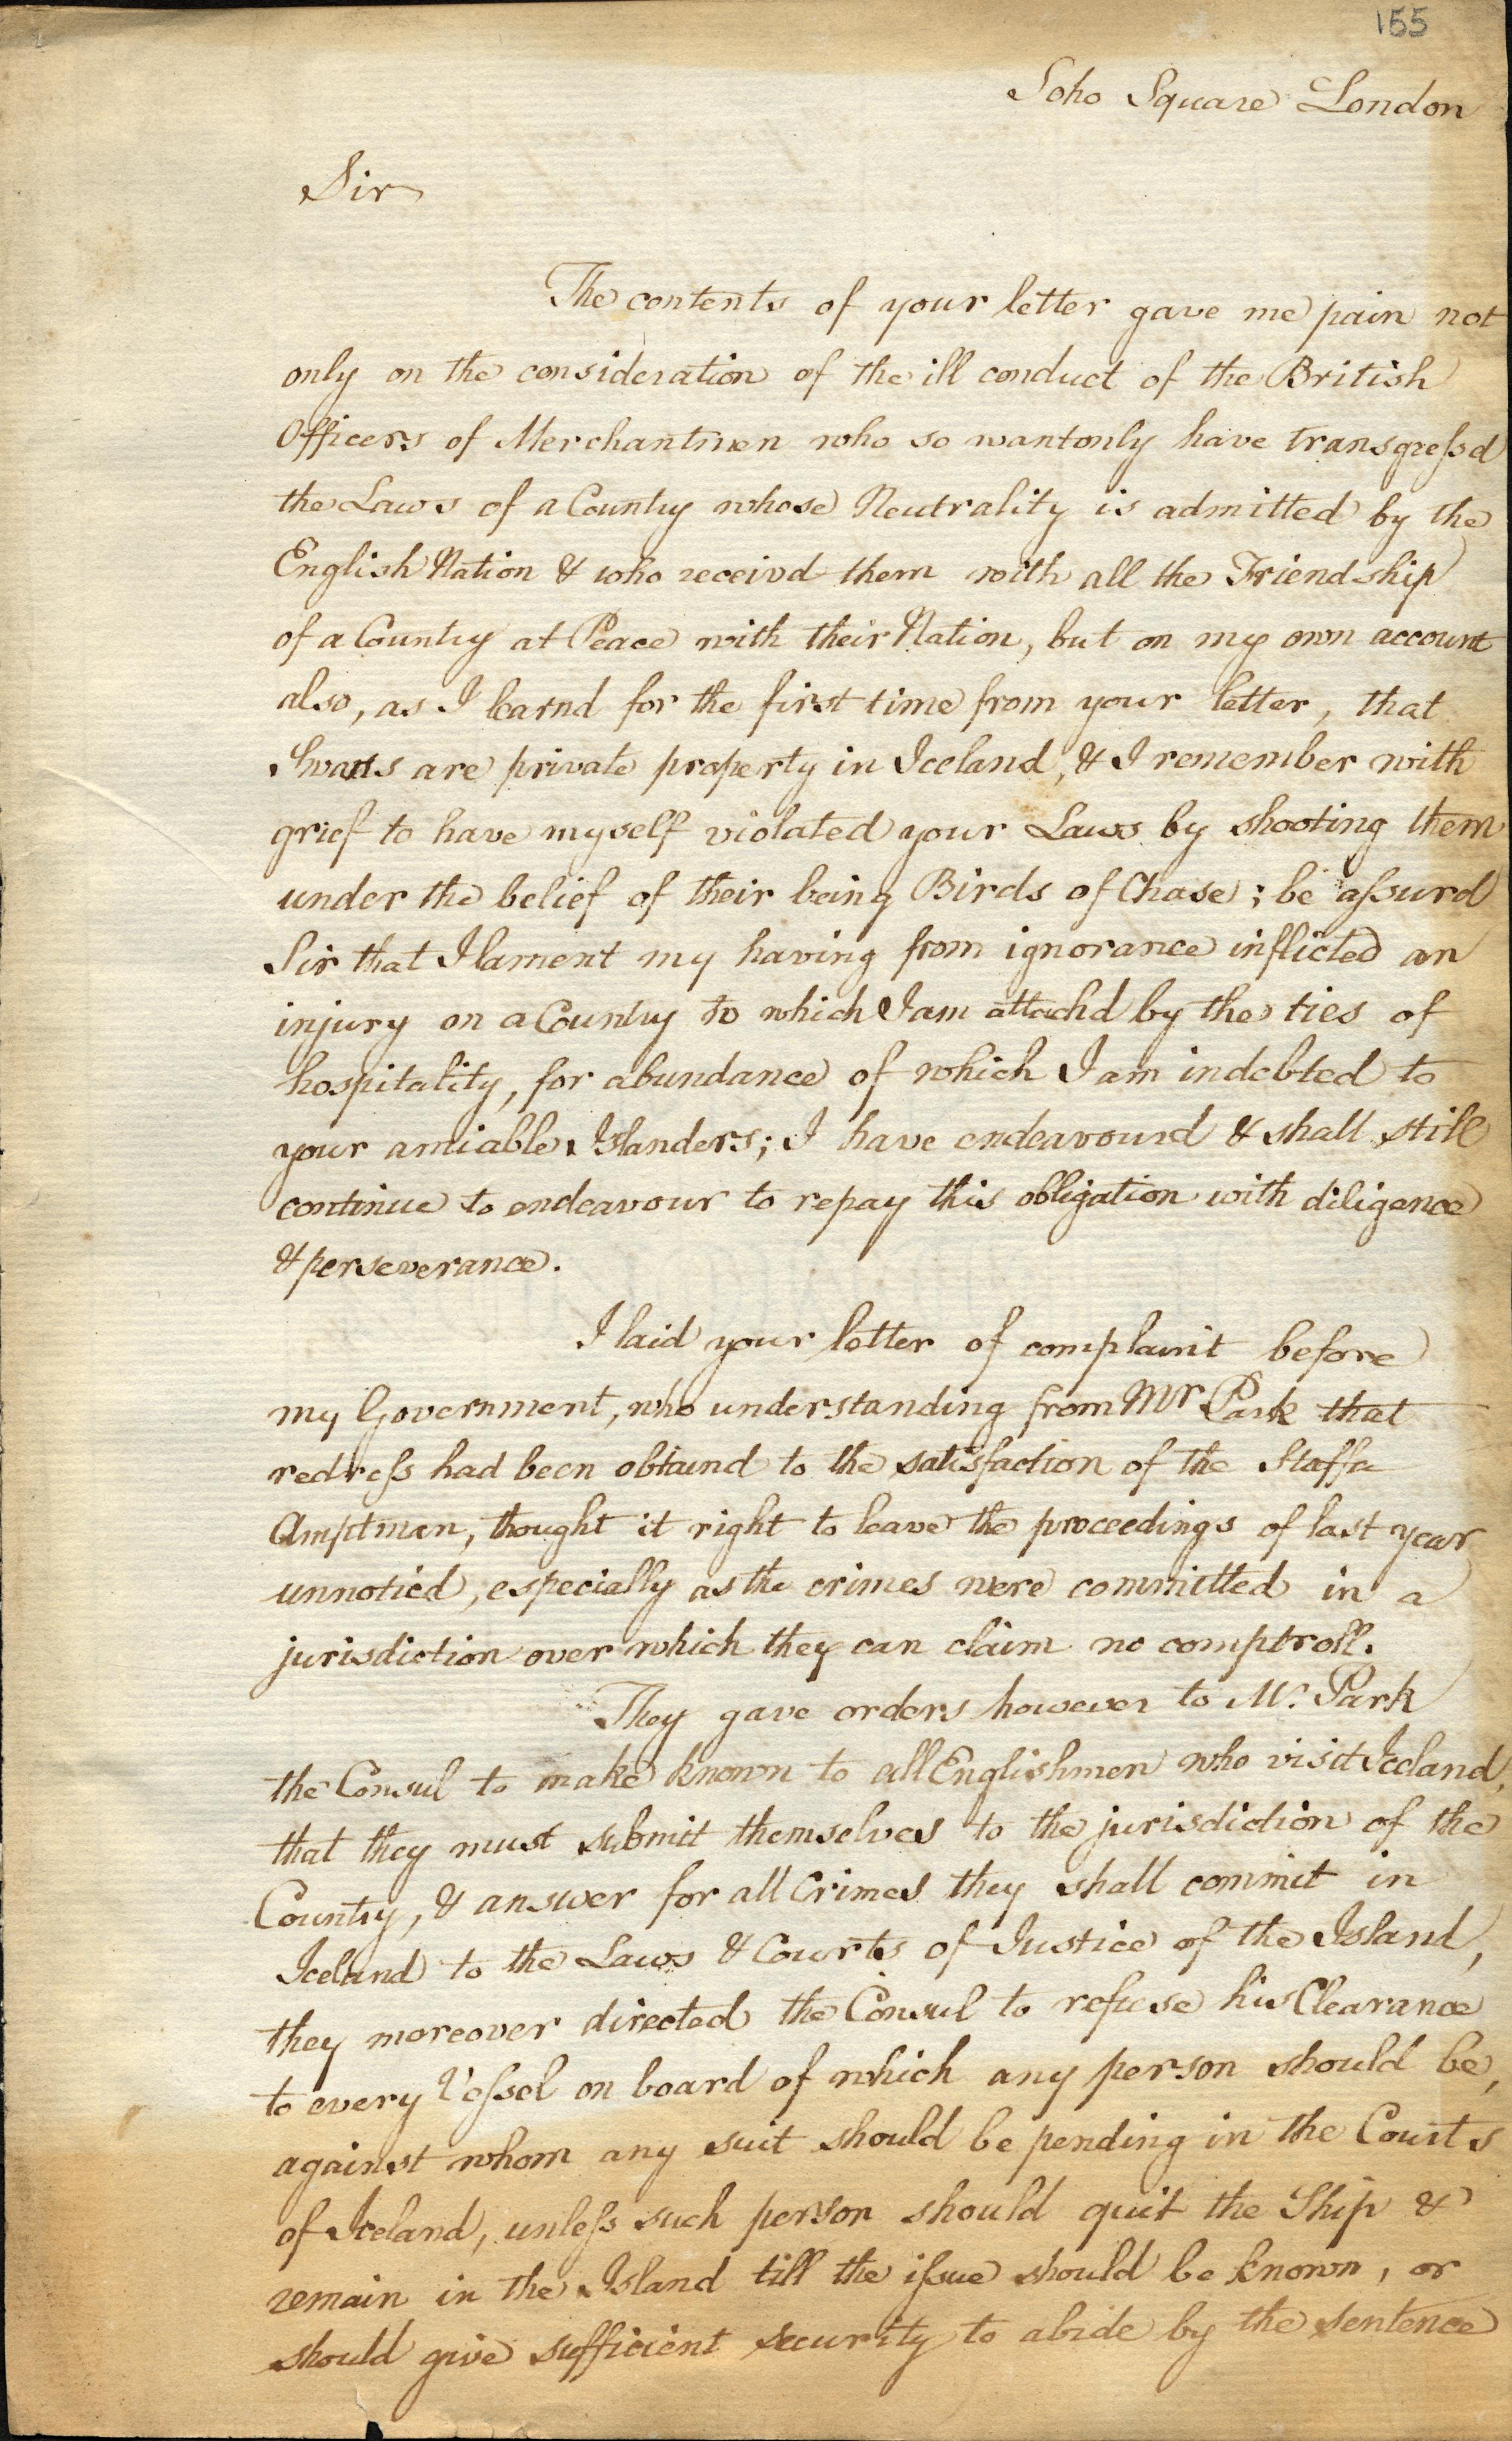 155
Soho Square London
Sir
The contents of your letter gave me pain not
only on the consideration of the ill conduct of the British
Officers of Merchantmen who so wantonly have transgreſsd
the Laws of a Country whose Neutrality is admitted by the
English Nation & who receivd them with all the Friendship
of a Country at Peace with their Nation, but on my own account
also, as I learnd for the first time from your letter, that
Swans are private property in Iceland, & I remember with
grief to have myself violated your Laws by shooting them
under the belief of their being Birds of Chase; be aſsurd
Sir that I lament my having from ignorance inflicted an
injury on a Country to which I am attachd by the ties of
hospitality, for abundance of which I am indebted to
your amiable Islanders; I have endeavourd & shall still
continue to endeavour to repay this obligation with diligence
& perseverance.
I laid your letter of complaint before
my Government, who understanding from Mr Park that
redreſs had been obtaind to the satisfaction of the Staffe
Amptmen, thought it right to leave the proceedings of last year
unnoticd, especially as the crimes were committed in a
jurisdiction over which they can claim no comptroll.
They gave orders however to Mr. Park
the Consul to make known to all Englishmen who visit Iceland,
that they must submit themselves to the jurisdiction of the
Country, & answer for all Crimes they shall commit in
Iceland to the Laws & Courts of Justice of the Island,
they moreover directed the Consul to refuse his Clearance
to every Veſsel on board of which any person should be,
against whom any suit should be pending in the Courts
of Iceland, unleſs such person should quit the Ship &
remain in the Island till the iſsue should be known, or
should give sufficient security to abide by the sentence